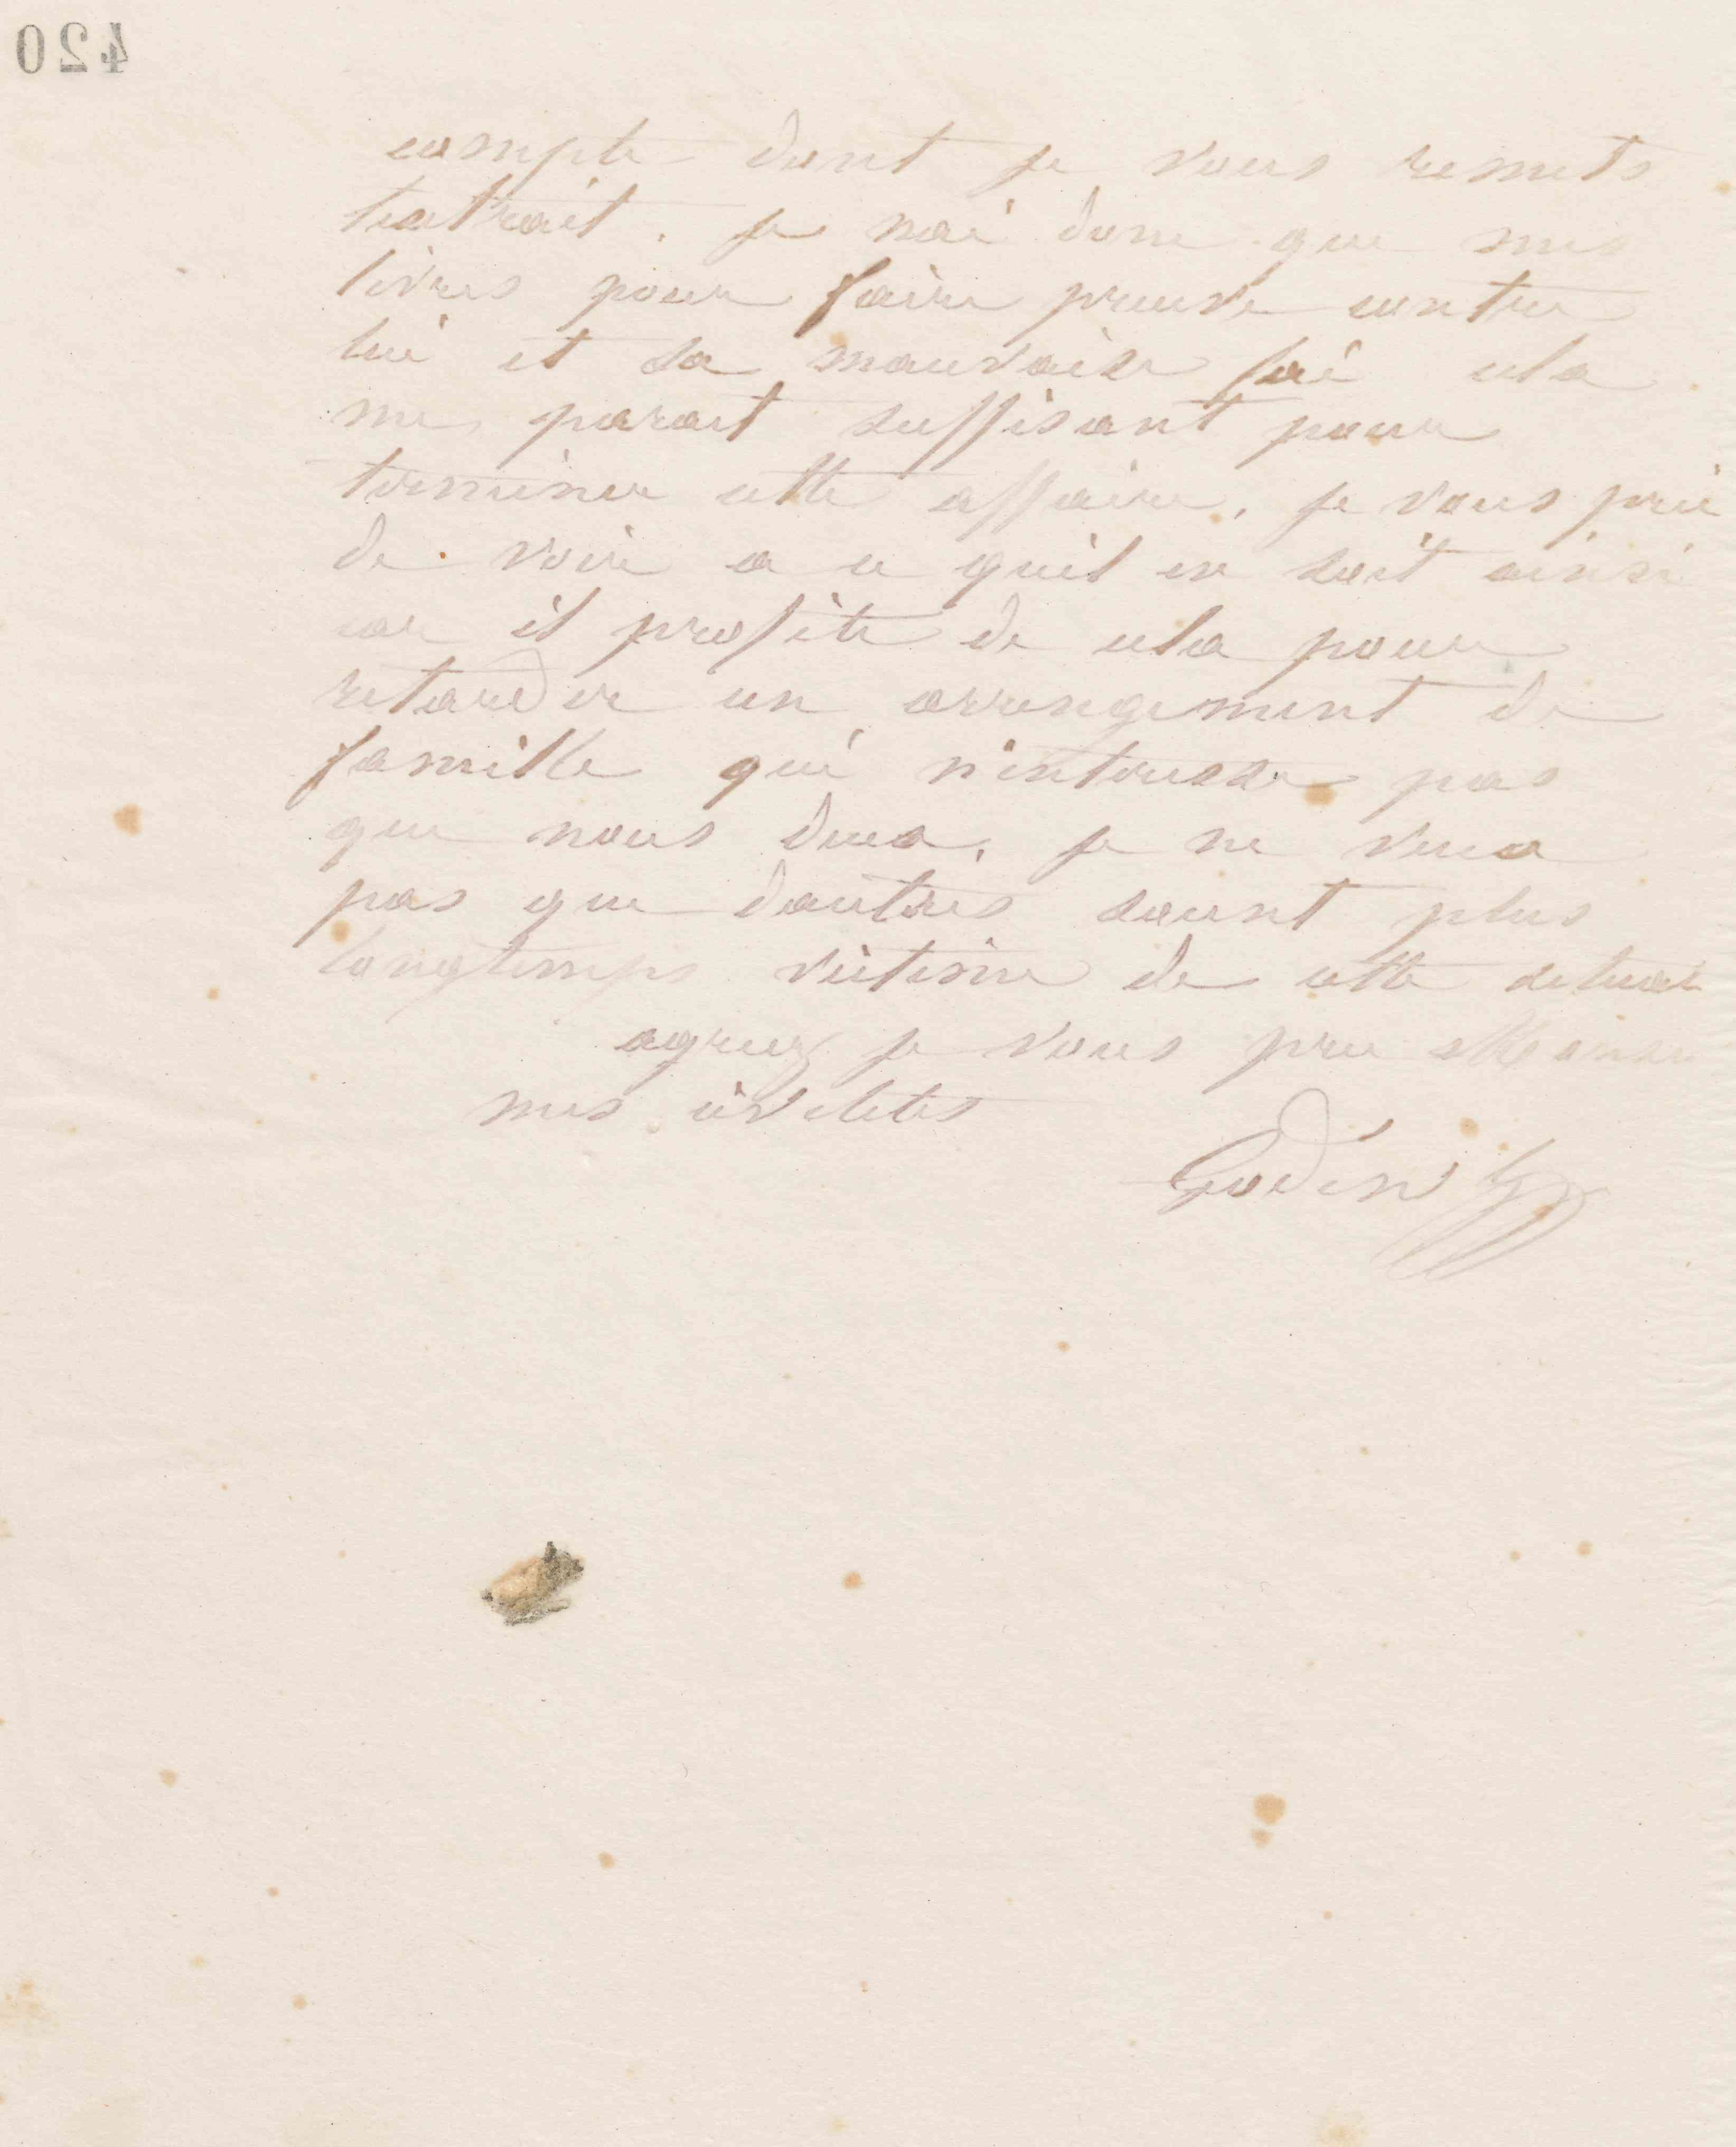 420
compte dont je vous remets
lextrait. je nai donc que mes
livres pour faire preuve contre
lui et sa mauvaise foi cela
me parait suffisant pour
terminer cette affaire, je vous prie
de voir a ce quil en soit ainsi
car il profite de cela pour
retarder un arrengement de
famille qui nintéresse pas
que nous deux, je ne veux
pas que dautres soient plus
longtemps victime de cette
agréez je vous prie Monsieur
mes civilités
Godin